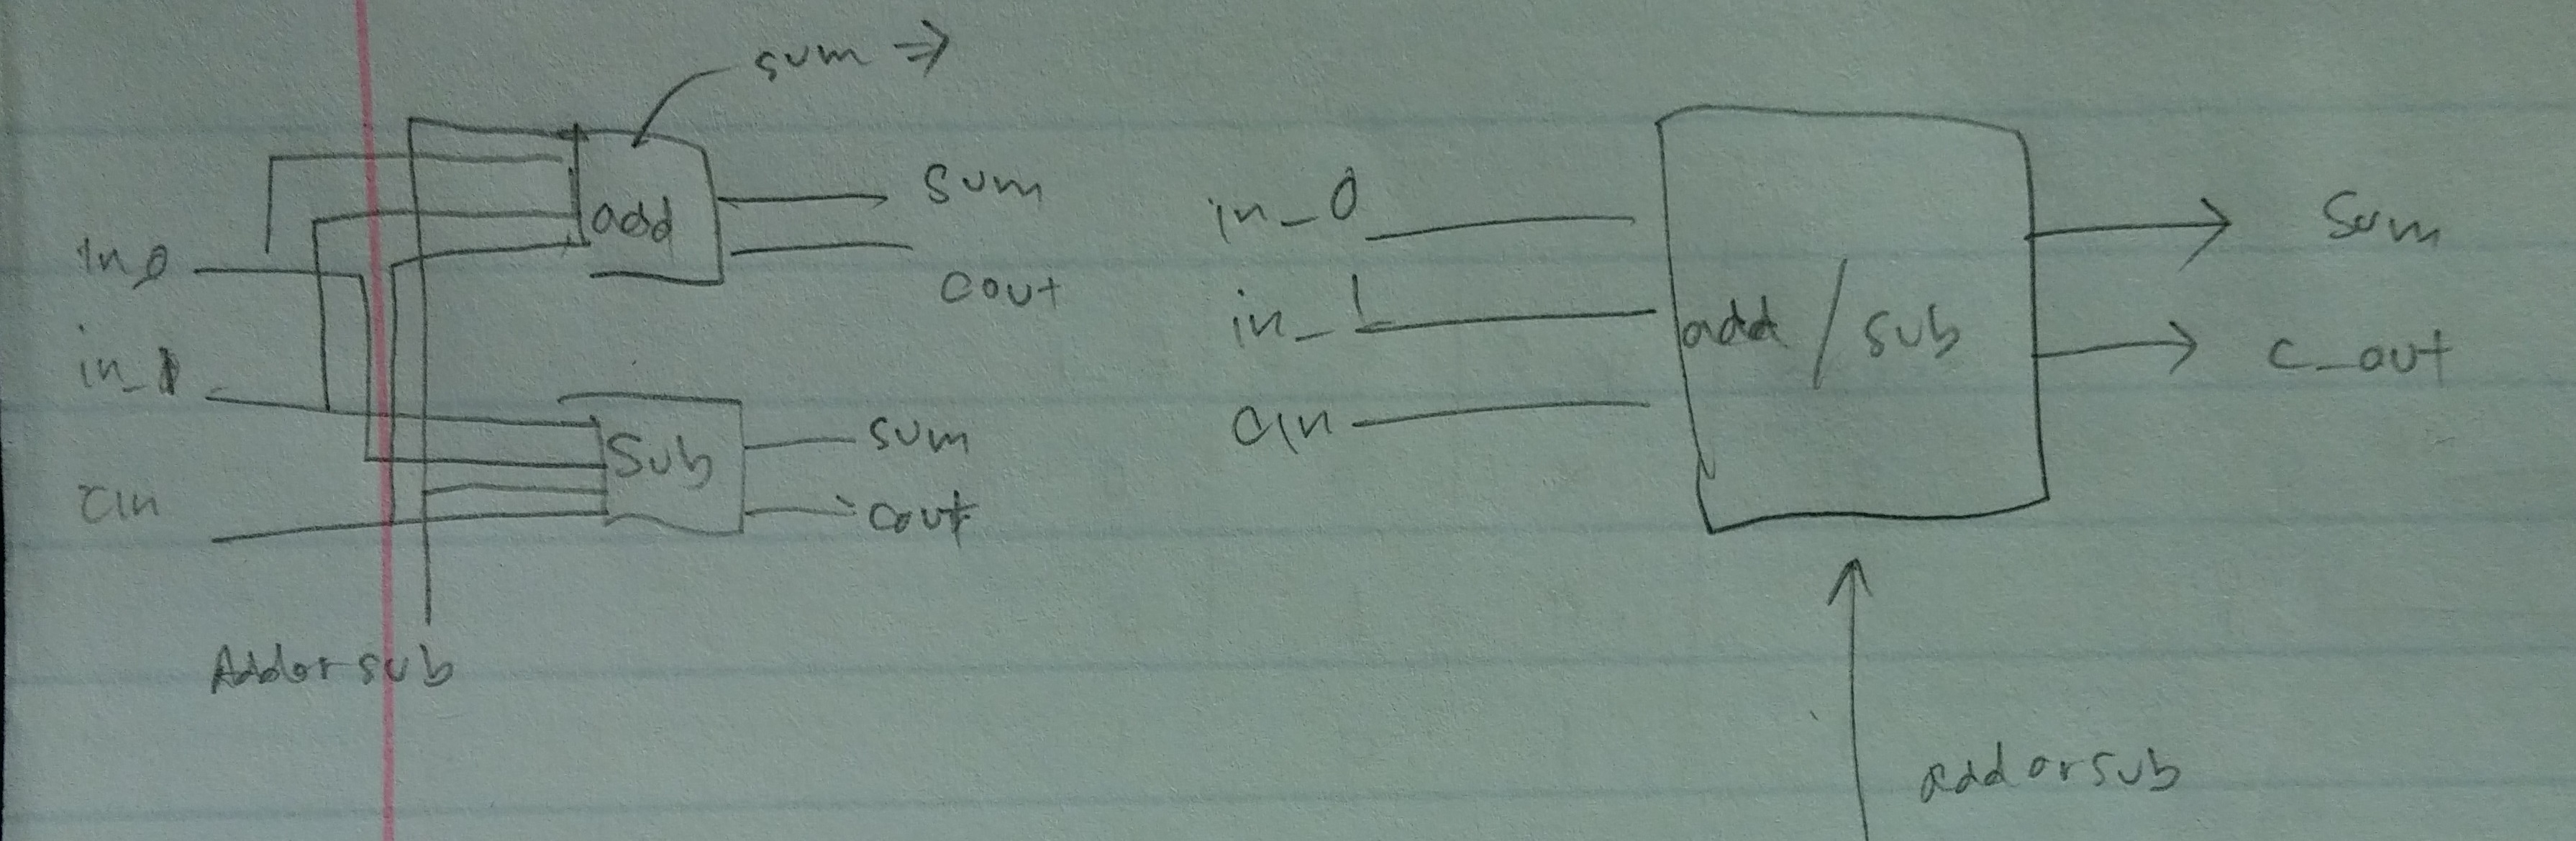 sum ⇒
add
sum
cout
in 0
in_1
cin
Sub
sum
cout
Addor sub
in_0
in_1
cin
add / sub
Sum
c_out
add or sub